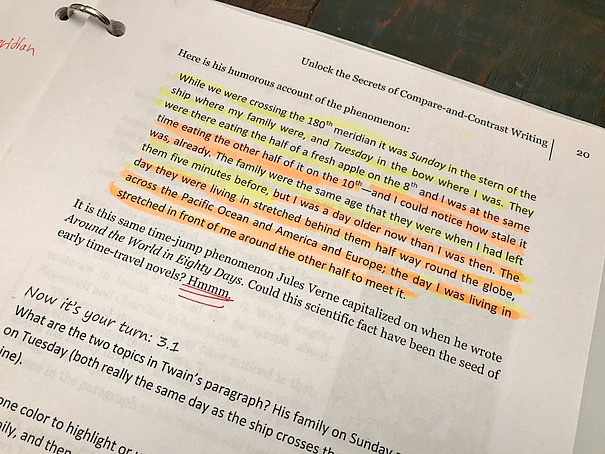 eridian
Unlock the Secrets of Compare-and-Contrast Writing | 20
Here is his humorous account of the phenomenon:
While we were crossing the 180th meridian it was Sunday in the stern of the
ship where my family were, and Tuesday in the bow where I was. They
were there eating the half of a fresh apple on the 8th and I was at the same
time eating the other half of it on the 10th—and I could notice how stale it
was, already. The family were the same age that they were when I had left
them five minutes before, but I was a day older now than I was then. The
day they were living in stretched behind them half way round the globe,
across the Pacific Ocean and America and Europe; the day I was living in
stretched in front of me around the other half to meet it.
It is this same time-jump phenomenon Jules Verne capitalized on when he wrote
Around the World in Eighty Days. Could this scientific fact have been the seed of
early time-travel novels? Hmmm.
Now it's your turn: 3.1
What are the two topics in Twain's paragraph? His family on Sunday
on Tuesday (both really the same day as the ship crosses
ine).
one color to highlight or
ily, and then